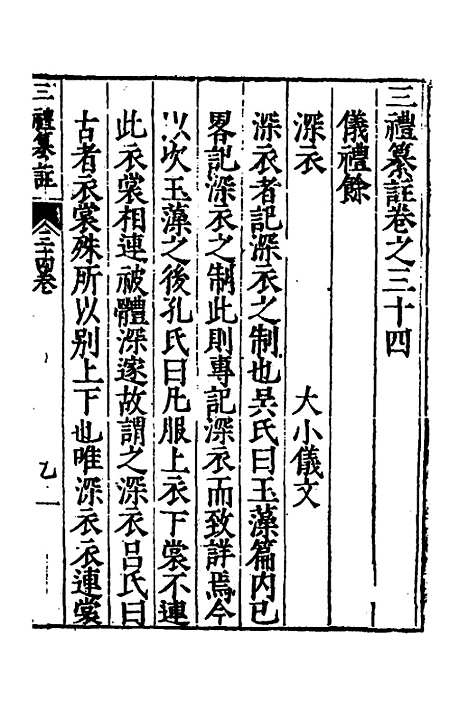 三禮纂註卷之三十四
儀禮餘
深衣　　　大小儀文
深衣者記深衣之制也吳氏曰玉藻篇内已
畧記深衣之制此則專記深衣而致詳焉今
以次玉藻之後孔氏曰凡服上衣下裳不連
此衣裳相連被體深邃故謂之深衣呂氏曰
古者衣裳殊所以别上下也唯深衣衣連裳
三禮纂註　三十四卷　乙一